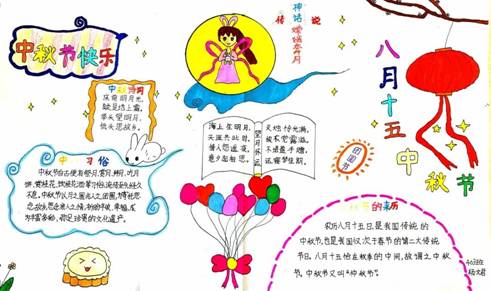 中秋节快乐
中秋诗词
床前明月光,
疑是地上霜。
举头望明月,
低头思故乡。
中 习俗
中秋节自古便有祭月、赏月、拜月、吃月
饼、赏桂花、饮桂花酒等习俗,流传至今,经久
不息。中秋节以月之圆兆人之团圆,为寄托思
念故乡,思念亲人之情,祈盼丰收、幸福,成
为丰富多彩、弥足珍贵的文化遗产。
传说
神话
嫦娥奔月
海上生明月,
天涯共此时。
情人怨遥夜,
竟夕起相思。
望月怀远
灭烛怜光满,
披衣觉露滋。
不堪盈手赠,
还寝梦佳期。
团圆节
八月十五
中秋节
节的来历
农历八月十五日,是我国传统的
中秋节,也是我国仅次于春节的第二大传统
节日。八月十五恰在秋季的中间,故谓之中秋
节。中秋节又叫“仲秋节”。